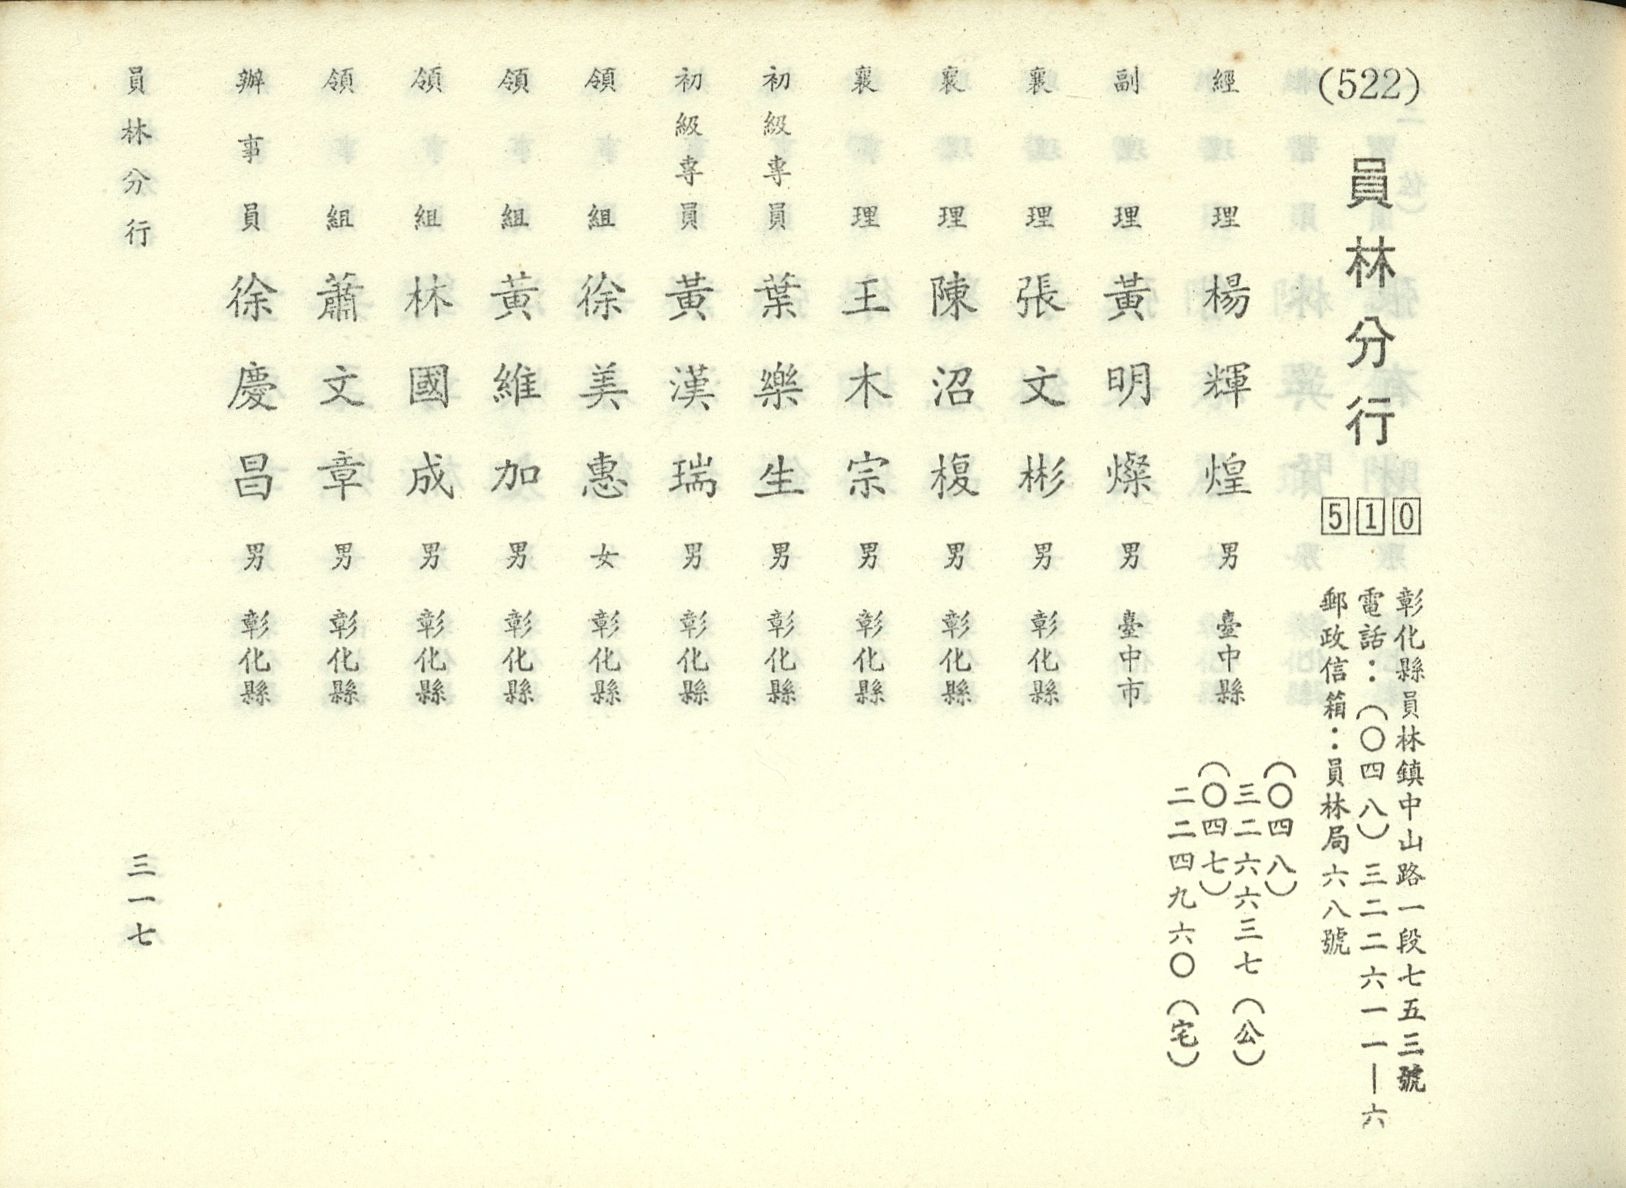 (522)
員林分行
510
彰化縣員林鎮中山路一段七五三號
電話：（〇四八）三二二六一一—六
郵政信箱：員林局六八號
經理 楊輝煌 男 臺中縣
（〇四八）
三二六六三七（公）
（〇四七）
二二四九六〇（宅）
副理 黃明燦 男 臺中市
襄理 張文彬 男 彰化縣
襄理 陳沼椱 男 彰化縣
襄理 王木宗 男 彰化縣
初級專員 葉樂生 男 彰化縣
初級專員 黃漢瑞 男 彰化縣
領組 徐美惠 女 彰化縣
領組 黃維加 男 彰化縣
領組 林國成 男 彰化縣
領組 蕭文章 男 彰化縣
辦事員 徐慶昌 男 彰化縣
員林分行
三一七